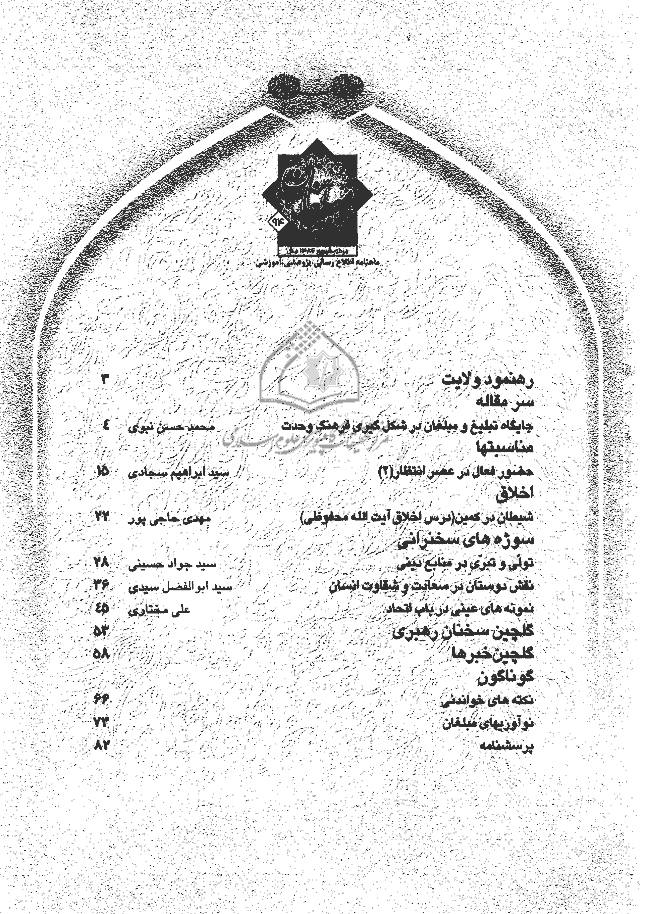 ۹۴
ماهنامه اطلاع رسانی، پژوهشی، آموزشی
رهنمود ولایت ۳
سر مقاله
جایگاه تبلیغ و مبلغان در شکل گیری فرهنگ وحدت محمد حسن نبوی ۴
مناسبتها
حضور فعال در عصر انتظار(۲) سید ابراهیم سجادی ۱۵
اخلاق
شیطان در کمین(درس اخلاق آیت الله محفوظی) مهدی حاجی پور ۲۲
سوژه های سخنرانی
تولّی و تبرّی در منابع دینی سید جواد حسینی ۲۸
نقش دوستان در سعادت و شقاوت انسان سید ابوالفضل سیدی ۳۶
نمونه های عینی در باب اتحاد علی مختاری ۴۵
گلچین سخنان رهبری ۵۳
گلچین خبرها ۵۸
گوناگون
نکته های خواندنی ۶۶
نوآوریهای مبلغان ۷۳
پرسشنامه ۸۲